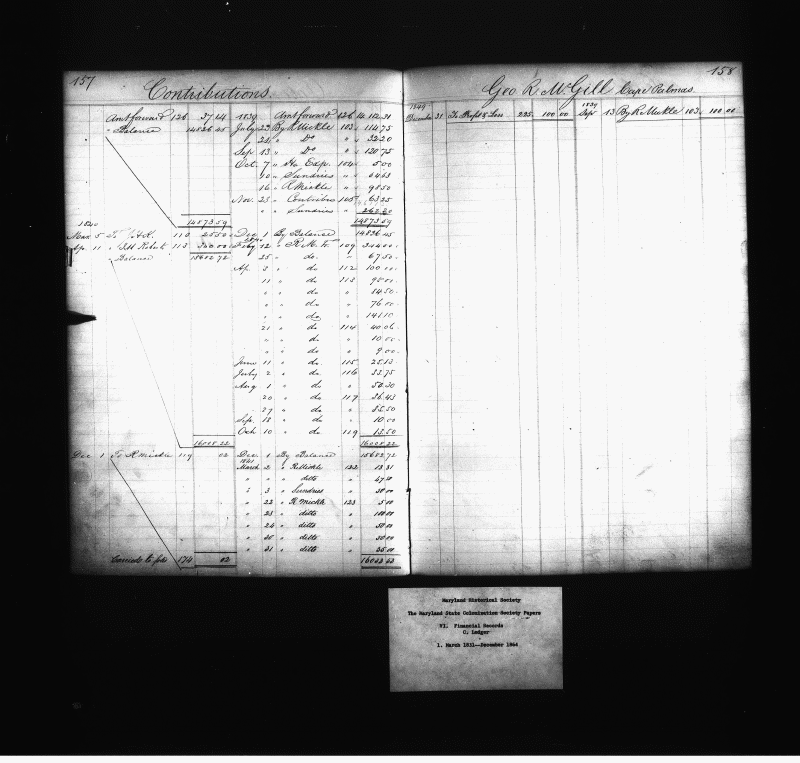 157
Contributions.
Amt forward 126 37.14 1839 Amt forward 126 14.112.31
" Balance 14836.45 July 23 By R Mickle 103 " 114.75
" 24 " Do " " 32.20
Sep 13 " Do " " 120.75
Oct. 7 " Ho Exp. 104 " 5.00
10 " Sundries " "
16 " R Mickle " "
Nov. 23 " Contribns 105 63.25
" " Sundries " 242.20
14873.59 14873.59
1840
Mar. 5 To 110 25.50 Dec 1 By Balance 14836.45
Ap. 11 " 113 Feby 12 " R. M. 109
" Balance 15602.72 25 " do. " 67.50
Ap. 3 " do 112 100.00
11 " do 113
" " do " 54.50
" " do " 76.00
" " do " 141.10
21 " do 114 40.06
" " do " 10.00
" " do " 9.00
June 11 " do 115 25.13
July 2 " do 116 33.75
Aug 1 " do " 50.30
20 " do 117 26.43
27 " do " 55.50
Sep. 18 " do " 10.00
Oct 10 " do 119 13.50
16008.22 16008.22
Dec 1 To R Mickle 119 02 Dec. 1 By Balance 15602.72
1841
March 2 " R Mickle 122 13 31
" " " ditto "
" 3 " Sundries " 50 00
" 22 " R Mickle 123 5 00
" 23 " ditto " 100 00
" 24 " ditto " 50 00
" 30 " ditto " 50 00
" 31 " ditto " 25 00
Carried to folio 174 02
158
Geo R McGill Cape Palmas.
1849 1839
December 31 To Profit & Loss 225 100 00 Sep 13 By R Mickle 103 100 00
Maryland Historical Society
The Maryland State Colonization Society Papers
VI. Financial Records
C. Ledger
1. March 1831--December 1864